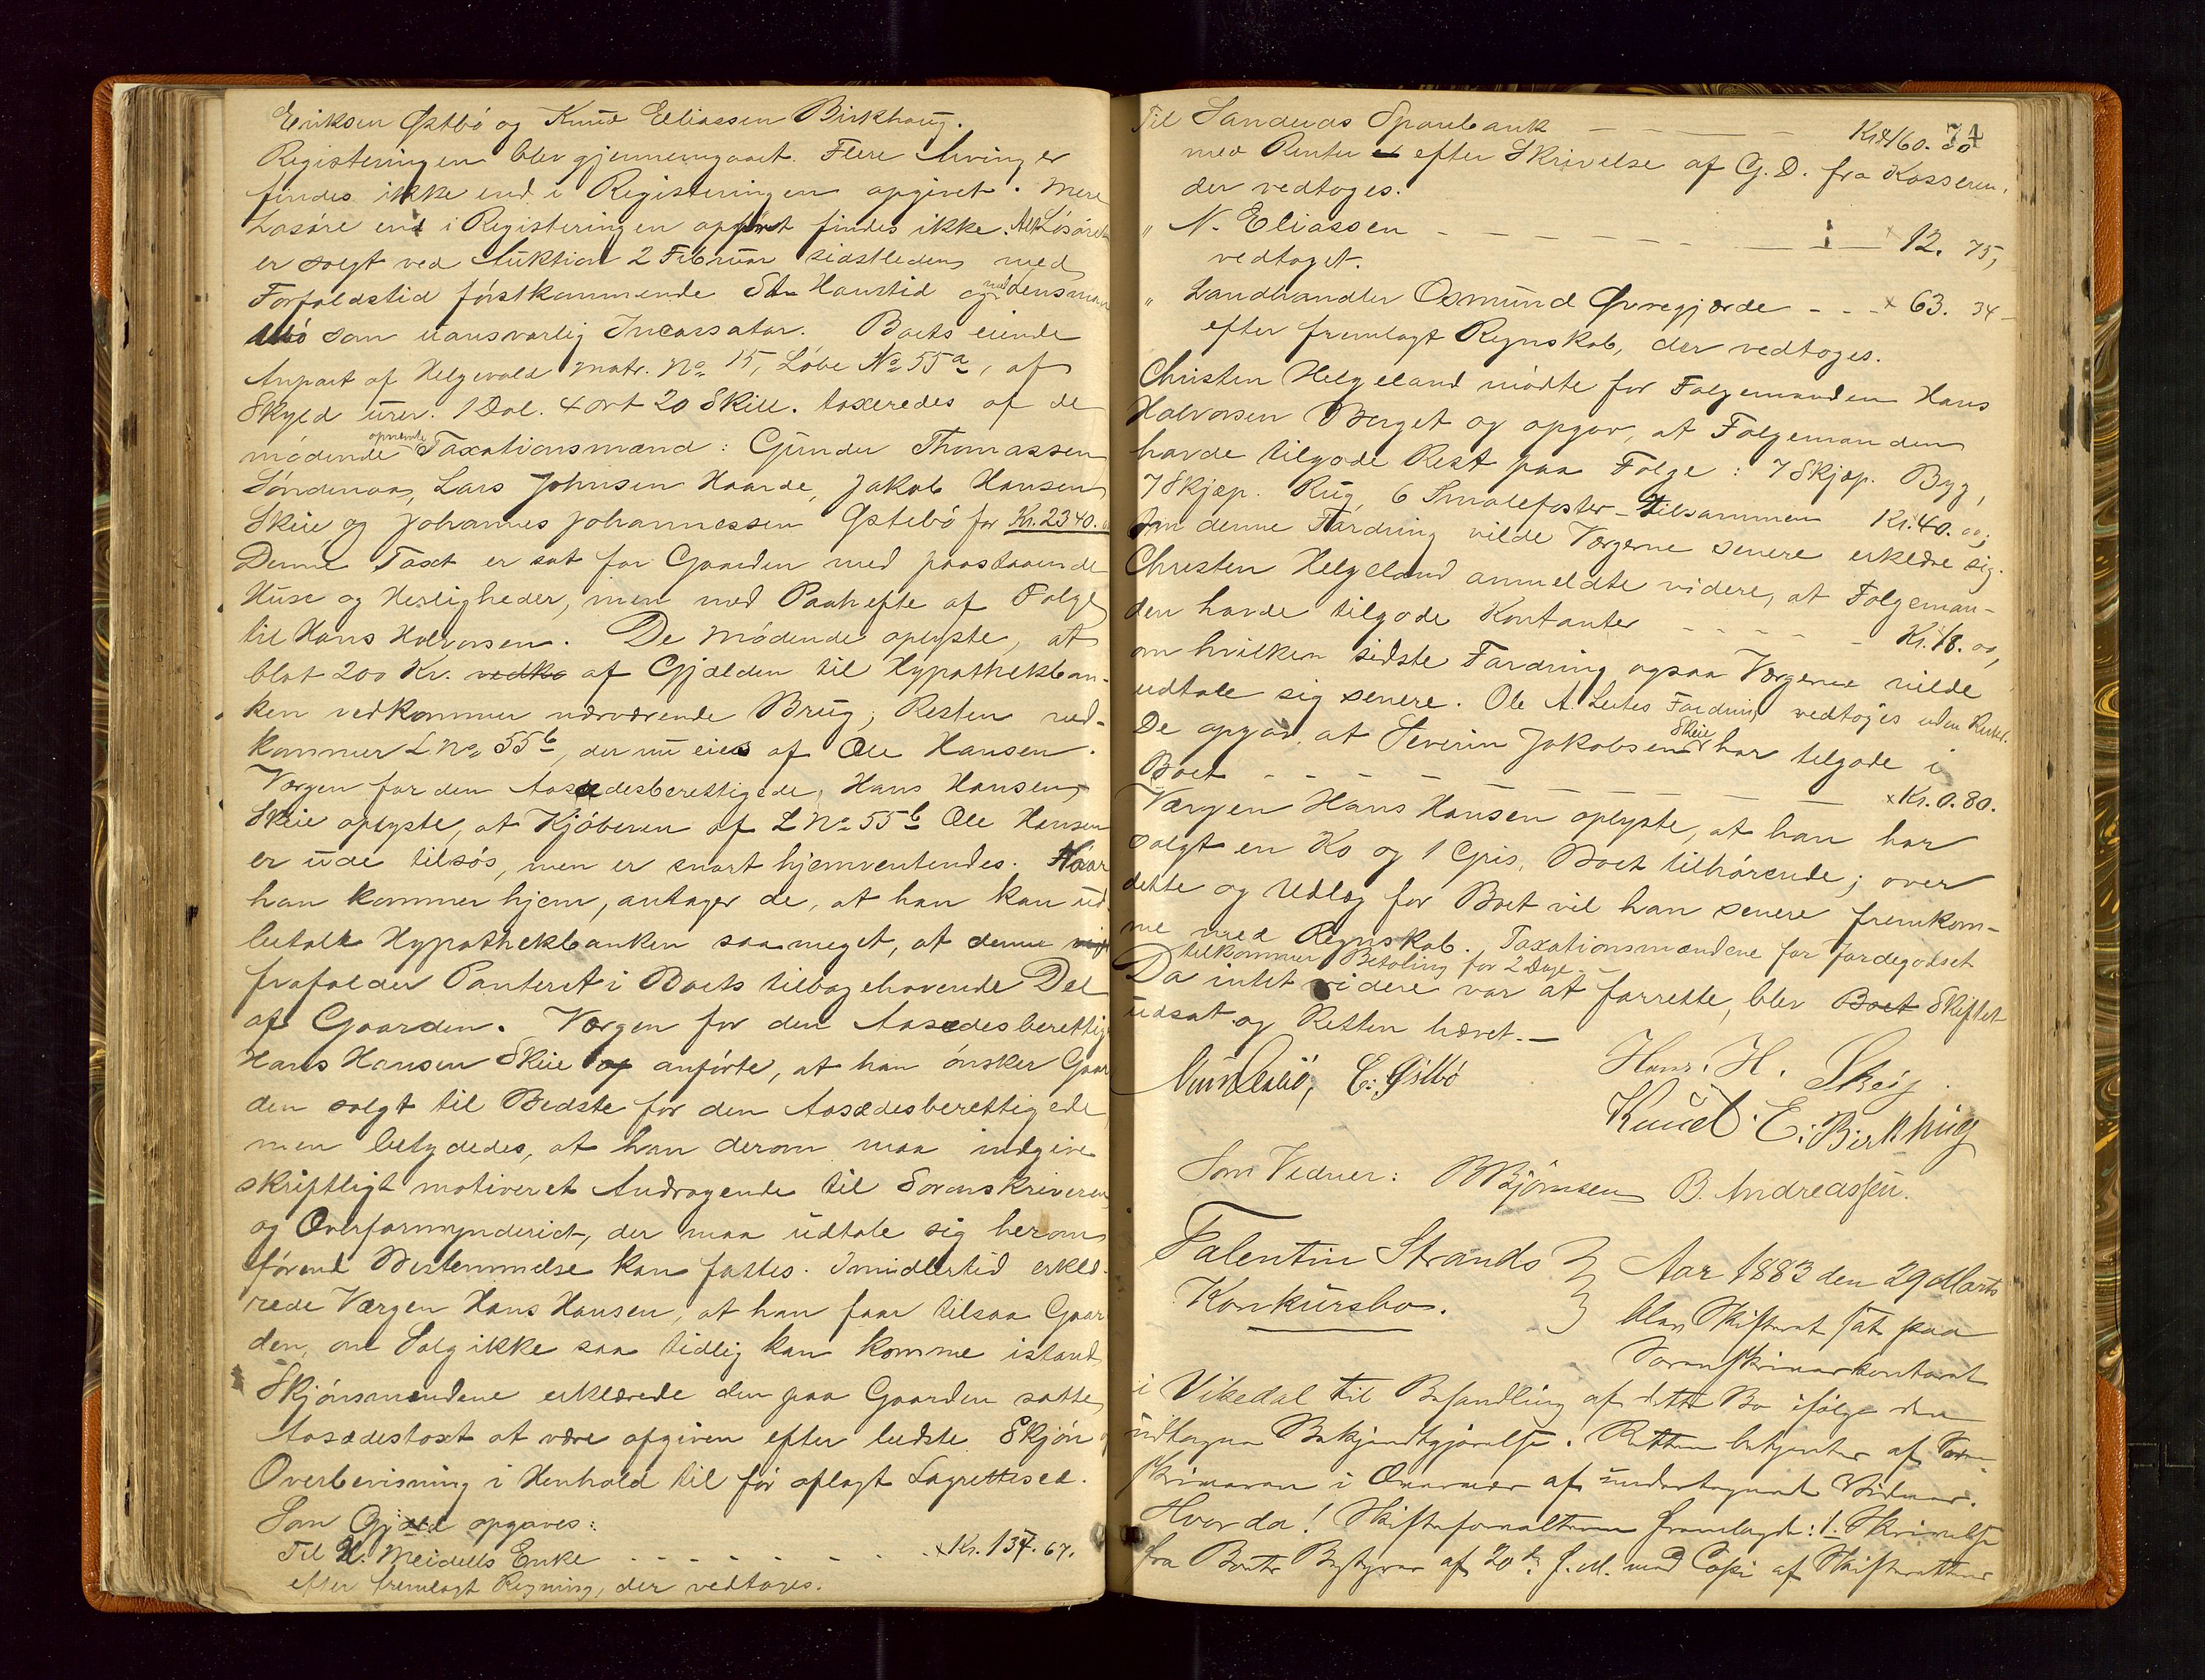 Eriksen Østbö og Knud Elliassen Birkhaug.
Registeringen blev gjennemgaaet. Flere Arvinger
findes ikke end i Registeringen opgivet. Mere
Løsøre end i Registeringen opført findes ikke. Alt Løsøret
er solgt ved Auktion 2 Februar sidstleden med
Forfaldstid førstkommende Ste Hanstid og med Lensmand
som uansvarlig Incassator. Boets eiende
Anpart af Helgevold Matr. No 15, Løbe No 55a, af
Skyld urev. 1 Dal. 4 ort 20 Skill. taxeredes af de
mødende opnævnte Taxationsmænd: Gunder Thomassen
Søndenaa, Lars Johnsen Haarde, Jakob Hansen
Skeie og Johannes Johannessen Østebö for Kr. 2340.
Denne Taxt er sat for Gaarden med paastaaende
Huse og Herligheder, men med Paahefte af Folge
til Hans Halvorsen. De Mødende oplyste, at
blot 200 Kr. vedko af Gjælden til Hypothekban-
ken vedkommer nærværende Brug; Resten ved-
kommer L No 55b, der nu eies af Ole Hansen.
Værgen for den Aasædesberettigede, Hans Hansen
Skeie oplyste, at Kjøberen af L No 55b Ole Hansen
er ude tilsøs, men er snart hjemventendes. Naar
han kommer hjem, antager de, at han kan ud
betale Hypothekbanken saa meget, at denne
frafalder Panteret i Boets tilbagehavende Del
af Gaarden. Værgen for den Aasædesberettig
Hans Hansen Skeie og anførte, at han ønsker Gaar
den solgt til Bedste for den Aasædesberettigede,
men betydedes, at han derom maa indgive
skriftligt motiveret Andragende til Sorenskriveren
og Overformynderiet, der maa udtale sig herom
førend Bestemmelse kan fattes. Imidlertid erklæ-
rede Værgen Hans Hansen, at han faar tilsaa Gaar
den, om Salg ikke saa tidlig kan komme istand
Skjønsmændene erklærede den paa Gaarden satte
Aasædestaxt at være afgiven efter bedste Skjøn og
Overbevisning i Henhold til før aflagt Lagrettesed.
Som Gjæld opgaves:
Til H. Meidells Enke - - - - - - - - x Kr. 137.67.
efter fremlagt Regning, der vedtoges.
74
Til Sandeids Sparebank - - - Kr. 260.00
med Renter efter Skrivelse af G. D. fra Kasseren,
der vedtoges.
" N. Eliassen - - - - - - - - x 12. 75,
vedtoget.
" Landhandler Osmund Øvregjærde - - - x 63. 34
efter fremlagt Regnskab, der vedtoges.
Christen Helgeland mødte for Folgemanden Hans
Halvorsen Berget og opgav, at Folgemanden
havde tilgode Rest paa Folge: 7 Skjæp. Byg,
7 Skjæp. Rug, 6 Smalefoster - tilsammen Kr. 40.00;
Om denne Fordring vilde Værgerne senere erklære sig.
Christen Helgeland anmeldte videre, at Folgeman-
den havde tilgode Kontanter - - - - - Kr. 18.00,
om hvilken sidste Fordring ogsaa Værgerne vilde
udtale sig senere. Ole A. Leites Fordring vedtoges uden Renter.
De opgav, at Severin Jakobsen Skeie har tilgode i
Boet - - - - - - - - x Kr. 0.80.
Værgen Hans Hansen oplyste, at han har
solgt en Ko og 1 Gris, Boet tilhørende; over
dette og Udlæg for Boet vil han senere fremkom-
me med Regnskab. Taxationsmændene for Jordegodset
tilkommer Betaling for 2 Dage.
Da intet videre var at forrette, blev Boet Skiftet
udsat og Retten hævet. -
E. Østbö Hans. H. Skeig.
Knud. E. Birkhug
Som Vidner: B Bjørnsen B. Andreassen.
Falentin Strands } Aar 1883 den 29 Marts
Konkursbo. } blev Skifteret sat paa
Sorenskriverkontoret
i Vikedal til Behandling af dette Bo ifølge den
udtagne Bekjendtgjørelse. Retten betjentes af Soren-
skriveren i Overvær af undertegnede Vidner.
Hvor da! Skifteforvalteren fremlagde: 1. Skrivelse
fra Boets Bestyrer af 20de f. M. med Copi af Skifterettens